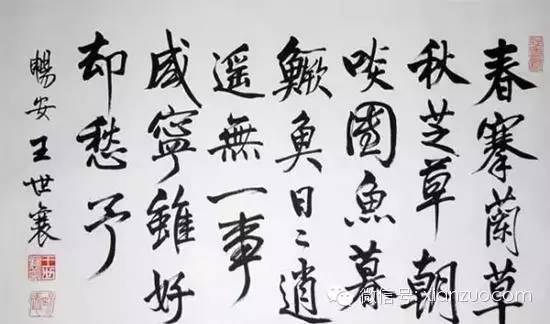 春搴蘭草
秋芝草朝
啖團魚暮
鱖魚日々逍
遥無一事
咸寧雖好
却愁予
暢安王世襄
微信号: xianzuocom